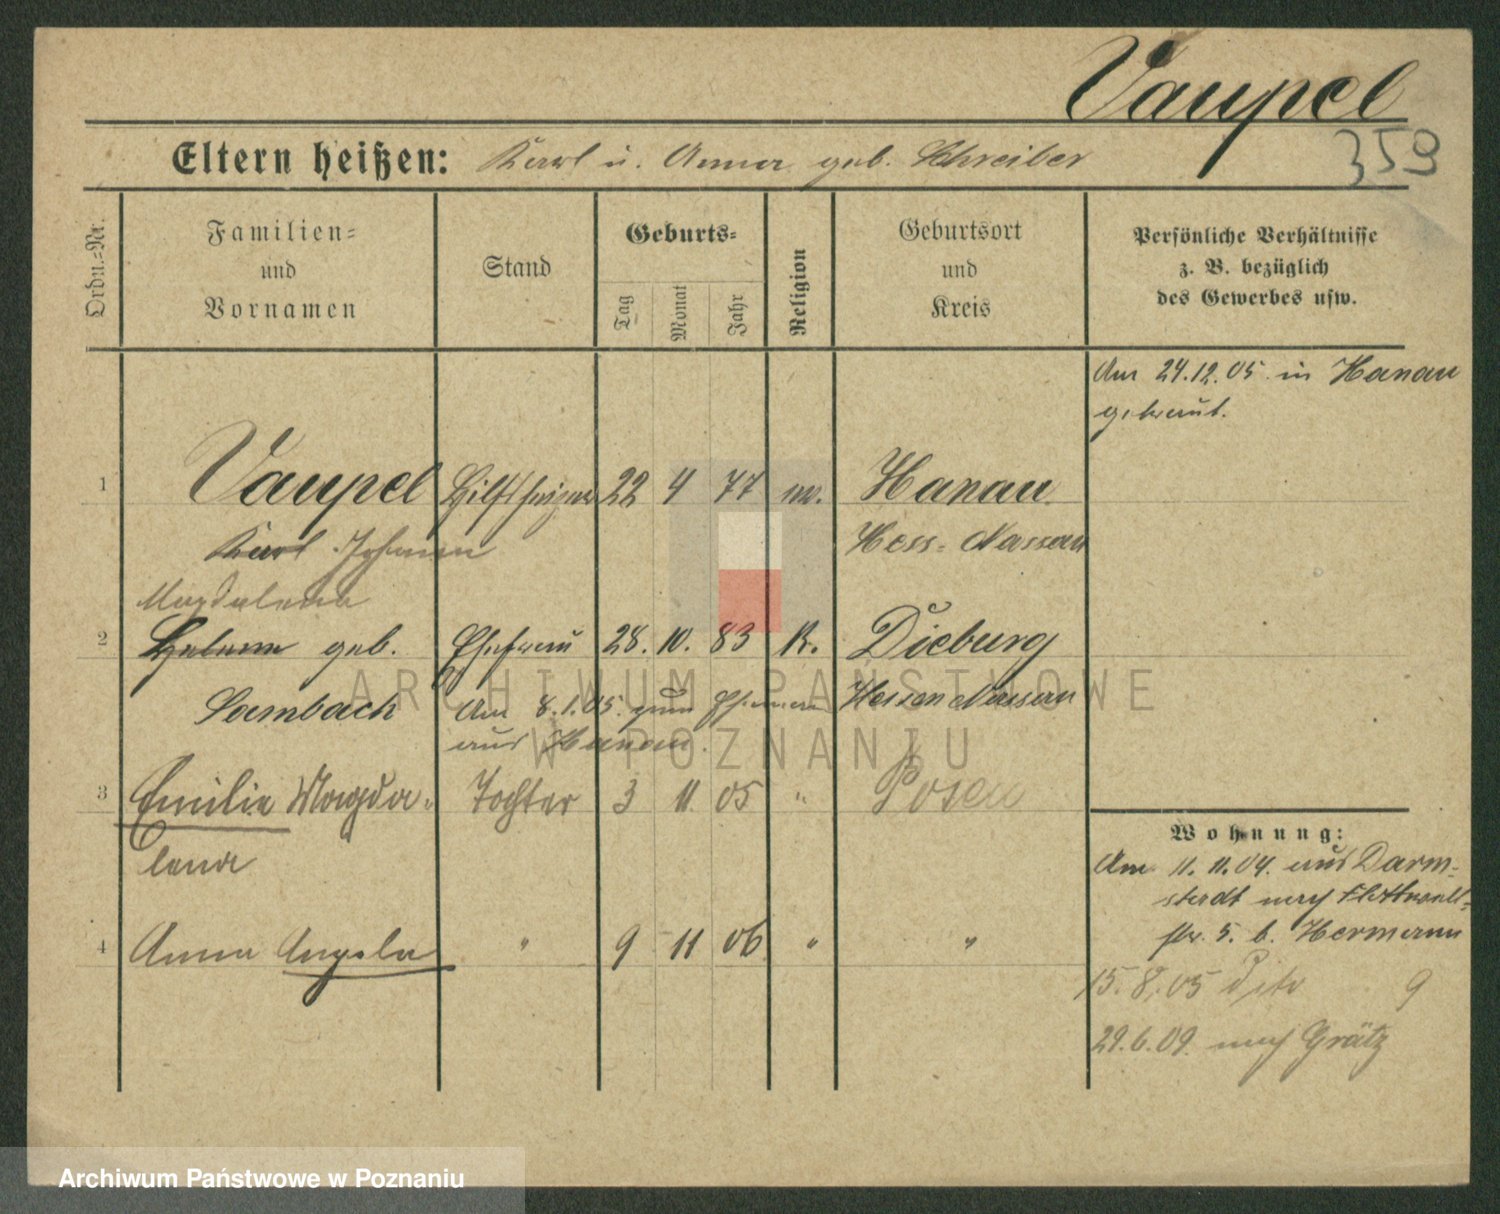 Vaupel
359
Eltern heißen: Karl u. Anna geb. Schreiber
Ordn.-Nr.
Familien-
und
Vornamen
Stand
Geburts-
Tag
Monat
Jahr
Religion
Geburtsort
und
Kreis
Persönliche Verhältnisse
z. B. bezüglich
des Gewerbes usw.
Am 24.12.05 in Hanau
getraut.
1 Vaupel Hilfsheizer 22 4 77 ev. Hanau
Karl Johann Hess-Nassau
Magdalena
2 Helene geb. Ehefrau 28. 10. 83 K. Dieburg
Sambach Am 8.1.05. zum Ehemann Hessen Nassau
aus Hanau.
3 Emilie Magda- Tochter 3 11 05 " Posen
lena
4 Anna Angela " 9 11 06 " "
Wohnung:
Am 11.11.04. aus Darm-
stadt nach Flottwell-
str. 5. b. Hermann
15.8.05 dto 9
29.6.09. nach Grätz
ARCHIWUM PAŃSTWOWE
W POZNANIU
Archiwum Państwowe w Poznaniu